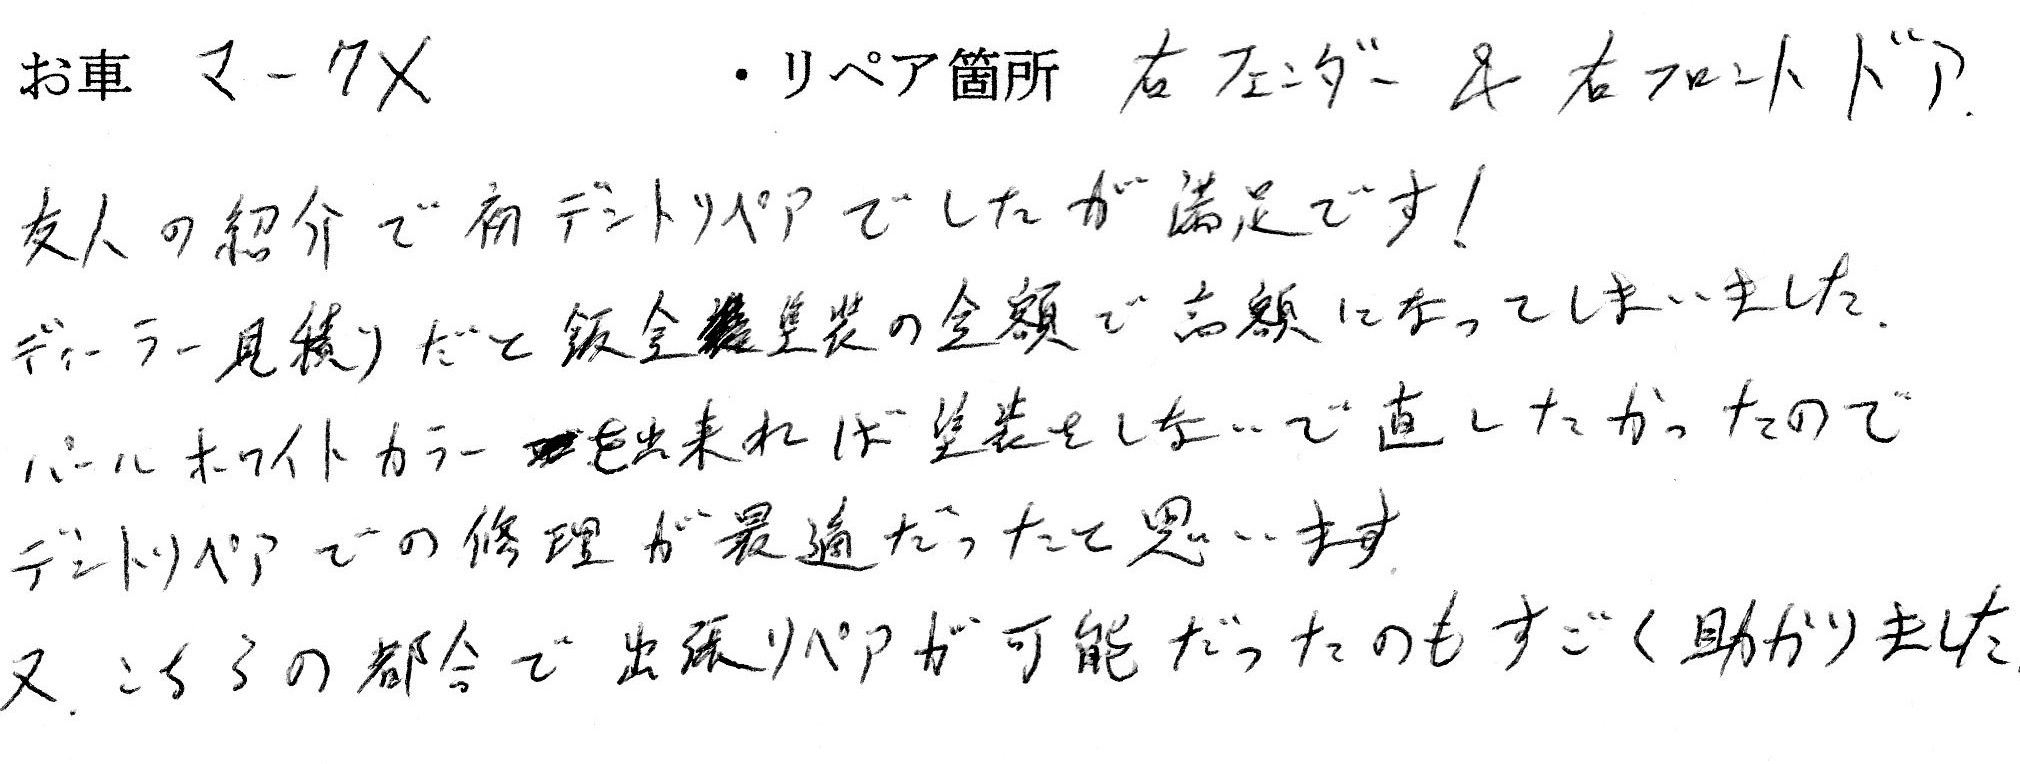 お車 マークX ・リペア箇所 右フェンダー & 右フロントドア.
友人の紹介で初デントリペアでしたが満足です!
ディーラー見積りだと鈑金塗装の金額で高額になってしまいました.
パールホワイトカラーを出来れば塗装をしないで直したかったので
デントリペアでの修理が最適だったと思います.
又.こちらの都合で出張リペアが可能だったのもすごく助かりました.